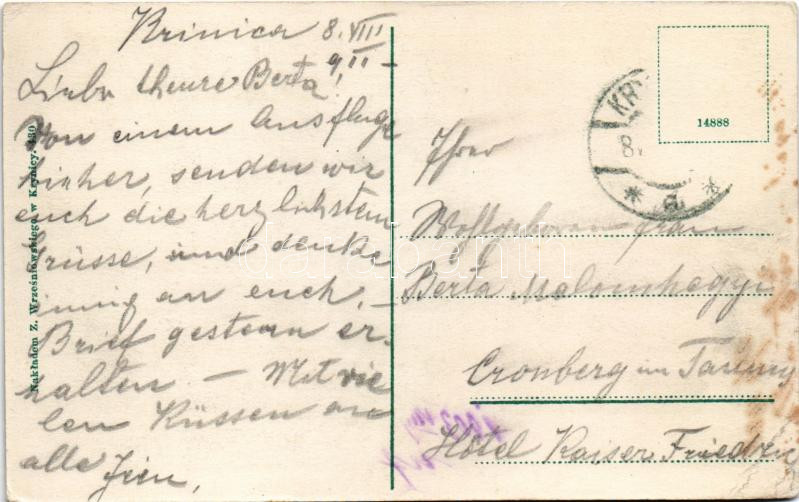 Krinica 8. VIII
911 –
Liebe theure Berta!
Von einem Ausfluge
hieher, senden wir
euch die herzlichsten
Grüsse, und denke
innig an euch, –
Brief gestern er-
halten – Mit vie
len Küssen an
alle
Nakładem Z. Wrześniowskiego, w Krynicy.
14888
KR
8
a
Ihrer
Wohlgeboren Frau
Berta Malomhegyi
Cronberg im Taunus
Hotel Kaiser Friedrich
darabanth